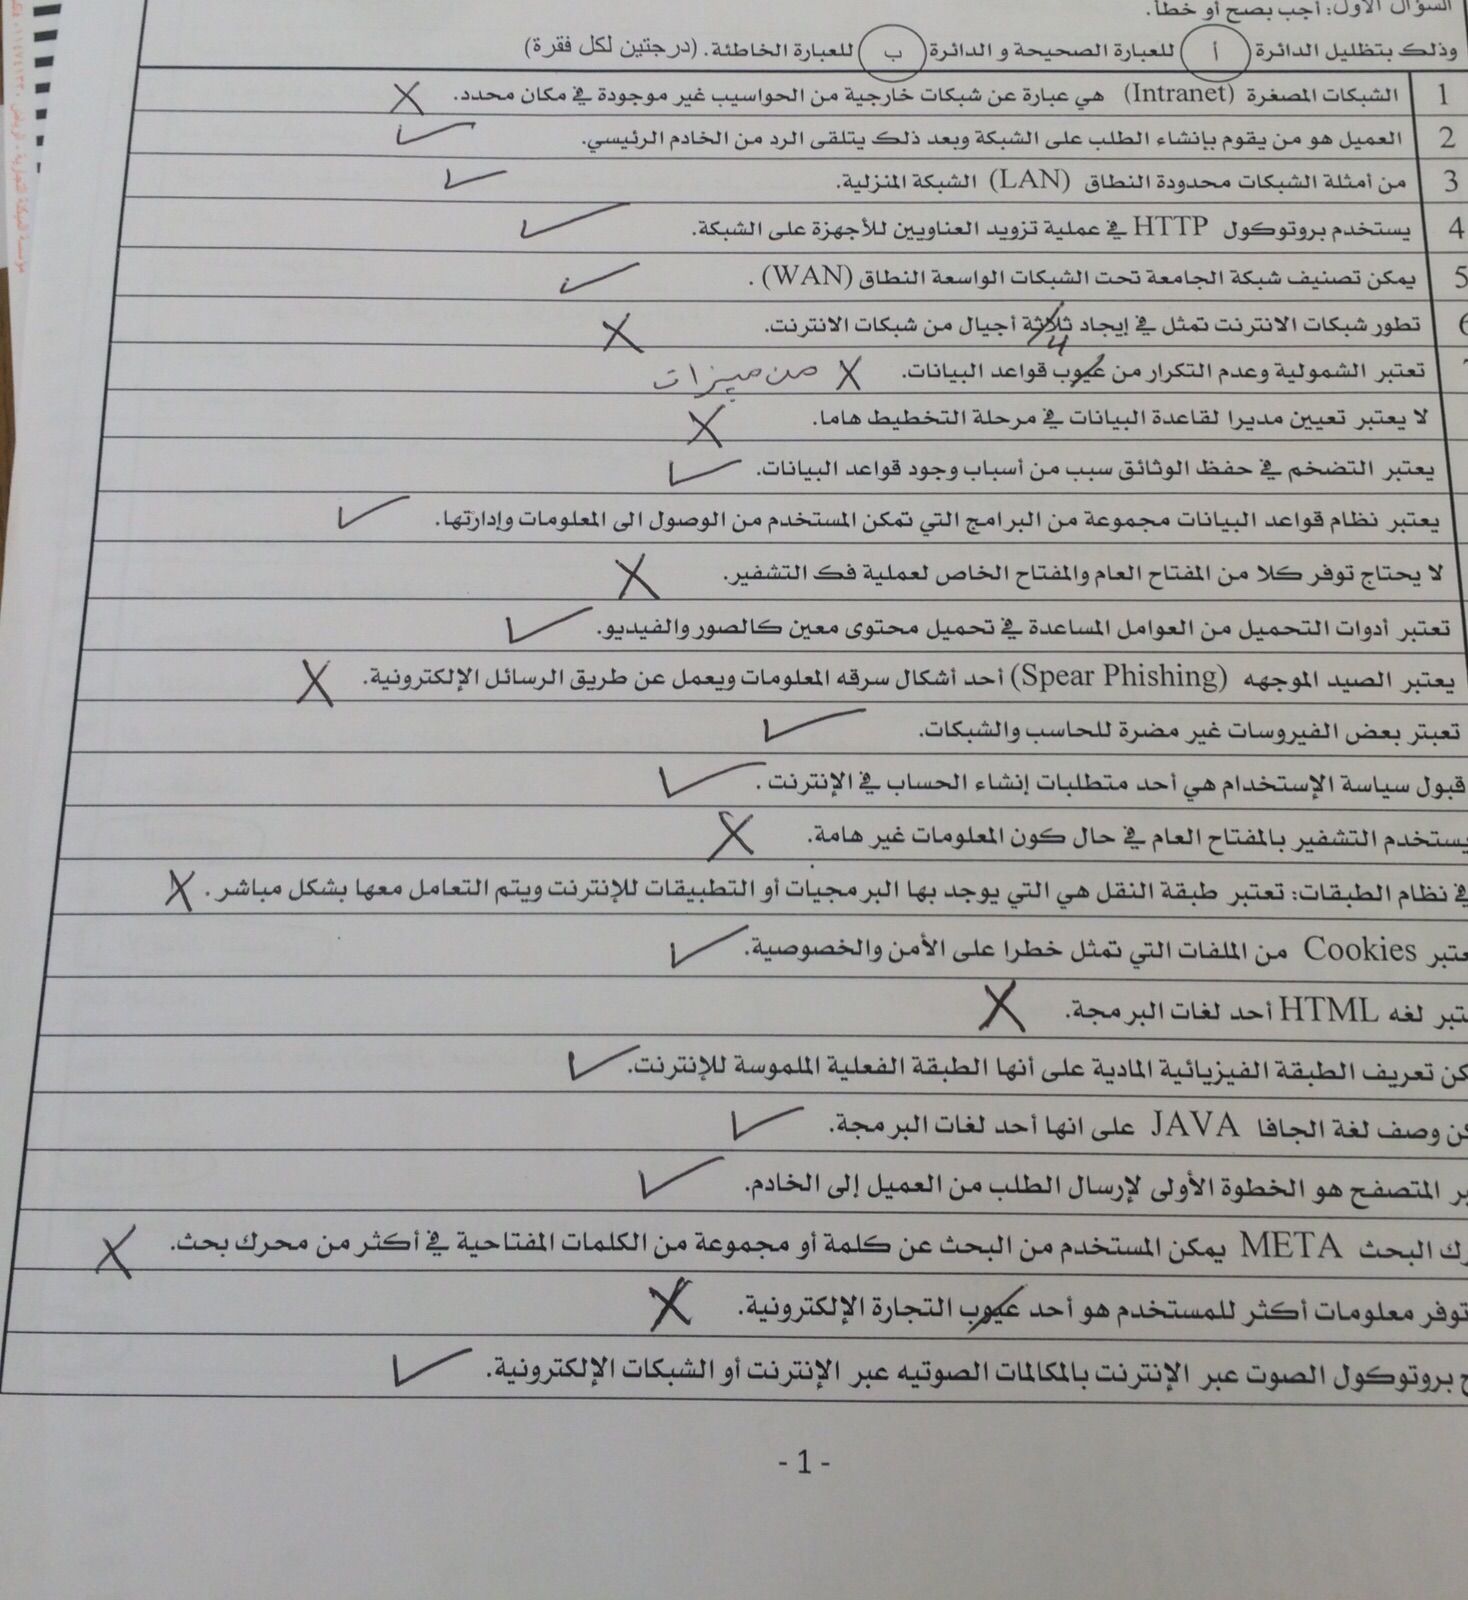 السؤال الأول: أجب بصح أو خطأ.
وذلك بتظليل الدائرة أ للعبارة الصحيحة و الدائرة ب للعبارة الخاطئة. (درجتين لكل فقرة)
1 الشبكات المصغرة (Intranet) هي عبارة عن شبكات خارجية من الحواسيب غير موجودة في مكان محدد. X
2 العميل هو من يقوم بإنشاء الطلب على الشبكة وبعد ذلك يتلقى الرد من الخادم الرئيسي. ✓
3 من أمثلة الشبكات محدودة النطاق (LAN) الشبكة المنزلية. ✓
4 يستخدم بروتوكول HTTP في عملية تزويد العناويين للأجهزة على الشبكة. ✓
5 يمكن تصنيف شبكة الجامعة تحت الشبكات الواسعة النطاق (WAN) . ✓
6 تطور شبكات الانترنت تمثل في إيجاد ثلاثة أجيال من شبكات الانترنت. X
4
تعتبر الشمولية وعدم التكرار من عيوب قواعد البيانات. X من ميزات
لا يعتبر تعيين مديرا لقاعدة البيانات في مرحلة التخطيط هاما. X
يعتبر التضخم في حفظ الوثائق سبب من أسباب وجود قواعد البيانات. ✓
يعتبر نظام قواعد البيانات مجموعة من البرامج التي تمكن المستخدم من الوصول الى المعلومات وإدارتها. ✓
لا يحتاج توفر كلا من المفتاح العام والمفتاح الخاص لعملية فك التشفير. X
تعتبر أدوات التحميل من العوامل المساعدة في تحميل محتوى معين كالصور والفيديو. ✓
يعتبر الصيد الموجهه (Spear Phishing) أحد أشكال سرقه المعلومات ويعمل عن طريق الرسائل الإلكترونية. X
تعبتر بعض الفيروسات غير مضرة للحاسب والشبكات. ✓
قبول سياسة الإستخدام هي أحد متطلبات إنشاء الحساب في الإنترنت . ✓
يستخدم التشفير بالمفتاح العام في حال كون المعلومات غير هامة. X
في نظام الطبقات: تعتبر طبقة النقل هي التي يوجد بها البرمجيات أو التطبيقات للإنترنت ويتم التعامل معها بشكل مباشر . X
عتبر Cookies من الملفات التي تمثل خطرا على الأمن والخصوصية. ✓
تبر لغه HTML أحد لغات البرمجة. X
كن تعريف الطبقة الفيزيائية المادية على أنها الطبقة الفعلية الملموسة للإنترنت. ✓
كن وصف لغة الجافا JAVA على انها أحد لغات البرمجة. ✓
بر المتصفح هو الخطوة الأولى لإرسال الطلب من العميل إلى الخادم. ✓
رك البحث META يمكن المستخدم من البحث عن كلمة أو مجموعة من الكلمات المفتاحية في أكثر من محرك بحث. X
توفر معلومات أكثر للمستخدم هو أحد عيوب التجارة الإلكترونية. X
ح بروتوكول الصوت عبر الإنترنت بالمكالمات الصوتيه عبر الإنترنت أو الشبكات الإلكترونية. ✓
- 1 -